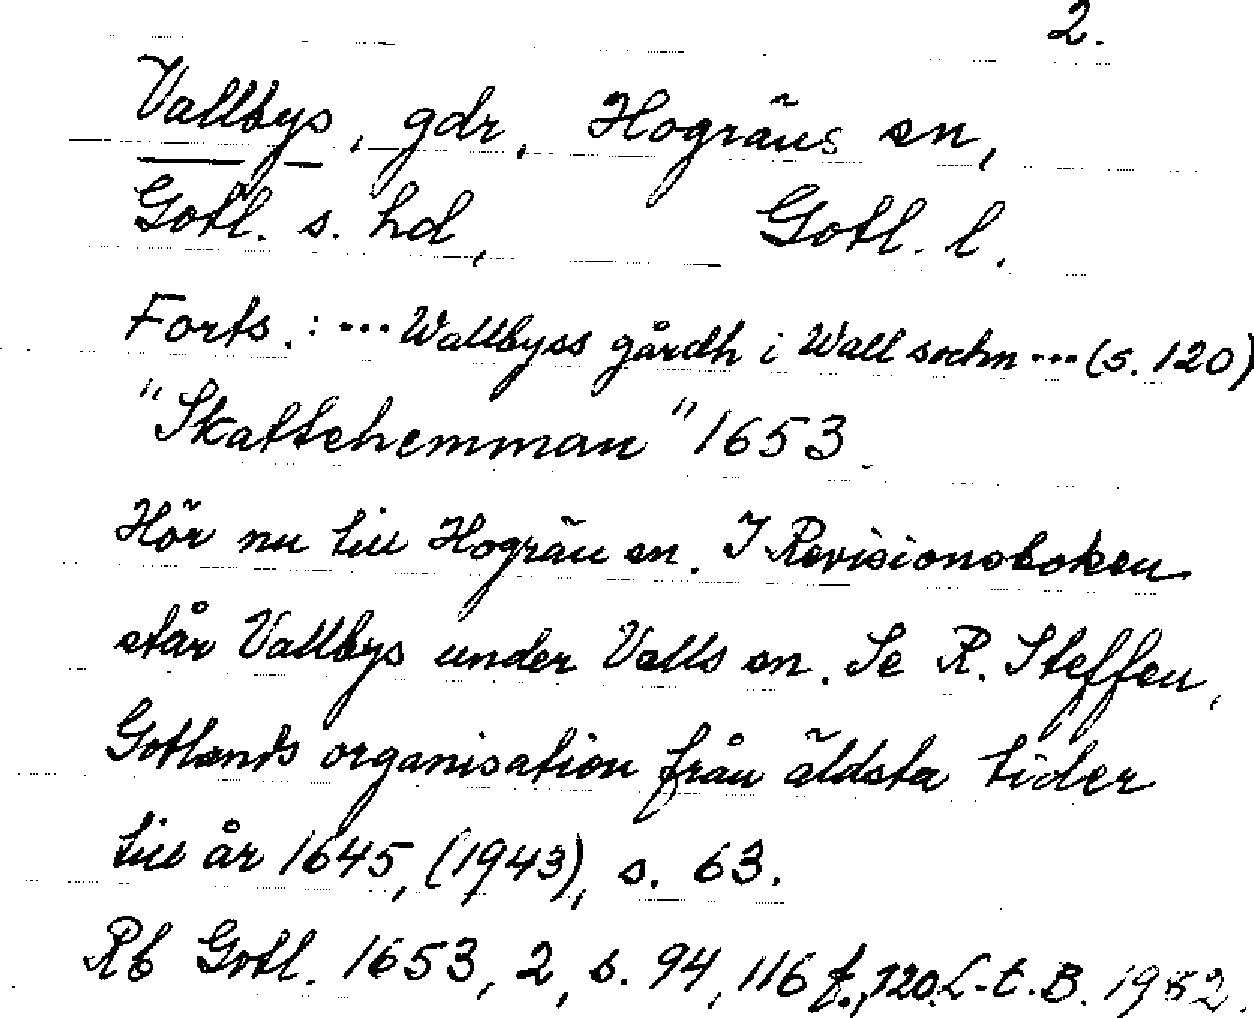 2.
Vallbys, gdr, Hogräns sn,
Gotl. s. hd, Gotl. l.
Forts.: ... Wallbyss gårdh i Wall sochn ... (s. 120)
"Skattehemman" 1653.
Hör nu till Hogrän sn. I Revisionsboken
står Vallbys under Valls sn. Se R. Steffen,
Gotlands organisation från äldsta tider
till år 1645, (1943), s. 63.
Rb Gotl. 1653, 2, s. 94, 116 f., 120. L-t. B. 1952.